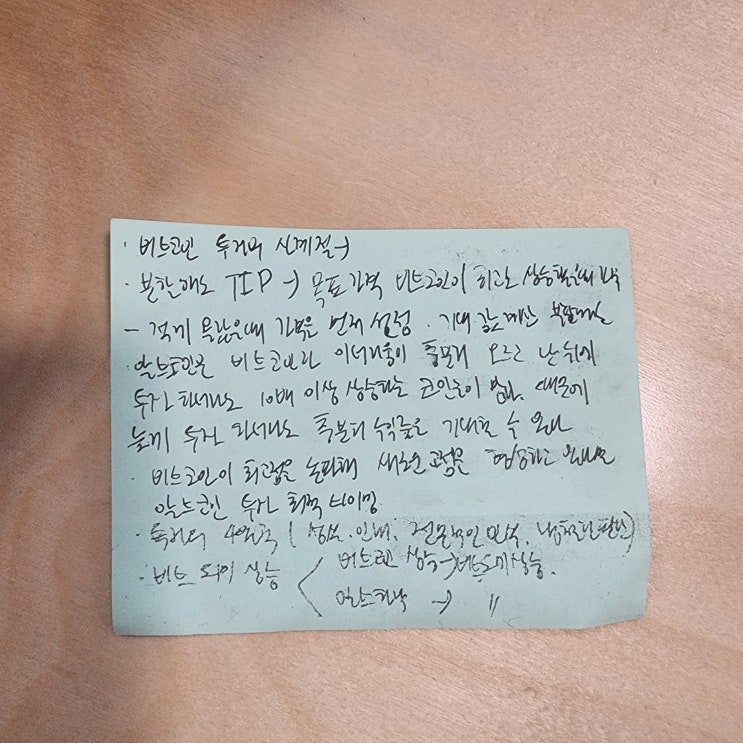 · 비트코인 투자의 사계절→
· 분할매도 TIP → 목표가격 비트코인이 최고로 상승했을때 가격
- 적게 올랐을때 가격을 먼저 설정. 기대값 계산 분할매도
· 알트코인은 비트코인과 이더리움이 충분히 오르고 난 뒤에
투자하더라도 10배 이상 상승하는 코인들이 많다. 때문에
늦게 투자 하더라도 충분히 수익률은 기대할 수 있다
· 비트코인이 최고점을 돌파해 새로운 고점을 형성하고 있다면
알트코인 투자 최적 타이밍.
· 투자의 4원칙 ( 정보. 인내. 전문적인 분석. 냉철한 판단)
· 비트 도미 상승 비트코인 상승 → 비트도미상승.
알트하락 → 〃